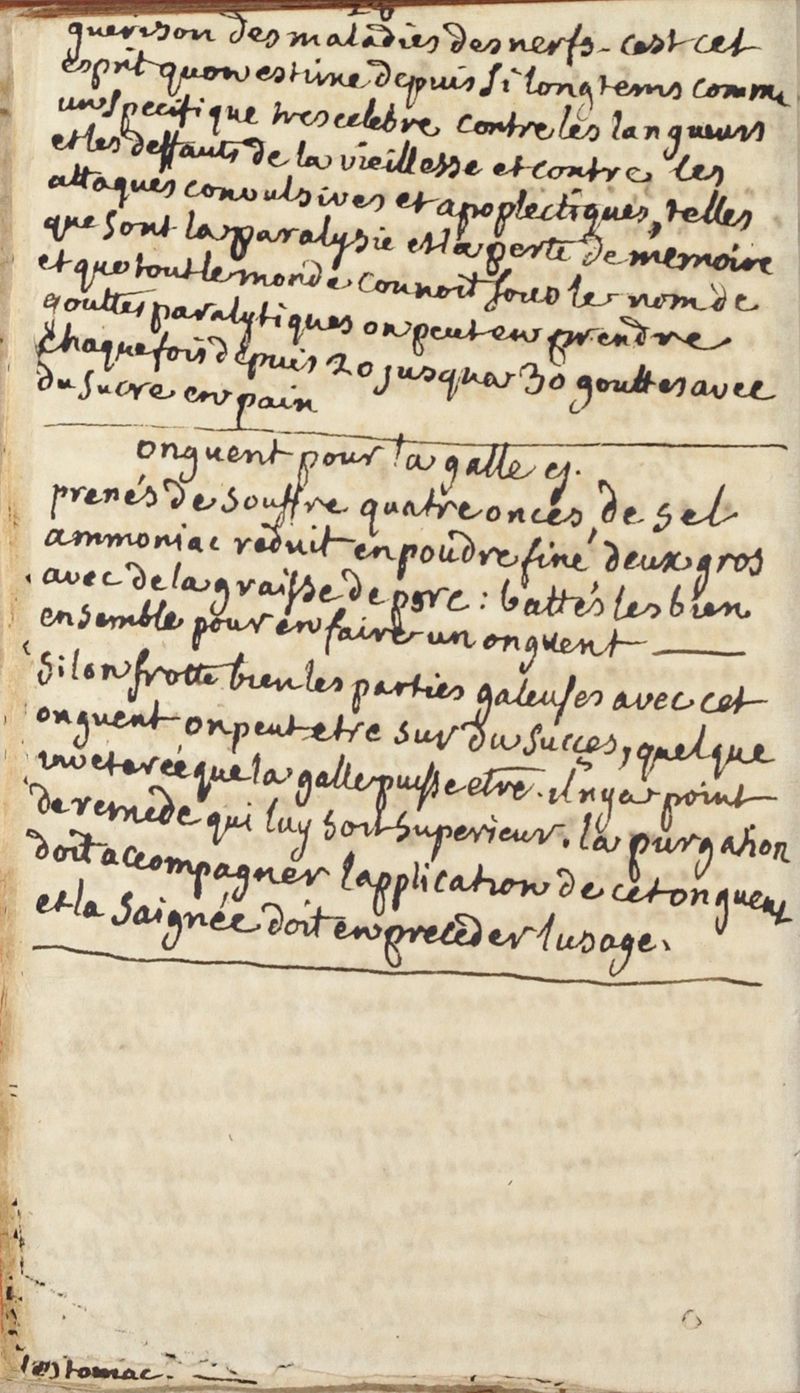 guerison des maladies des nerfs - cest cet
esprit quon estime depuis si longtems comme
un specifique tres celebre contre les langueurs
et les deffauts de la vieillesse et contre les
attaques convulsives et apoplectiques, telles
que sont la paralysie et la perte de mémoire
et que tout le monde connoit sous le nom de
gouttes paralytiques on peut en prendre
chaque fois depuis 20 jusqua 30 gouttes avec
du sucre en pain
onguent pour la galle
prenés de souffre quatre onces, de sel
ammoniac reduit en poudre fine deux gros
avec de la graisse de porc : battés les bien
ensemble pour en faire un onguent —
Si lon frotte bien les parties galeuses avec cet
onguent on peut etre sur du succes, quelque
inveterée que la galle puisse etre. il ny a point
de remede qui luy soit superieur. la purgation
doit accompagner lapplication de cet onguent
et la saignée doit en preceder lusage.
lestomac.